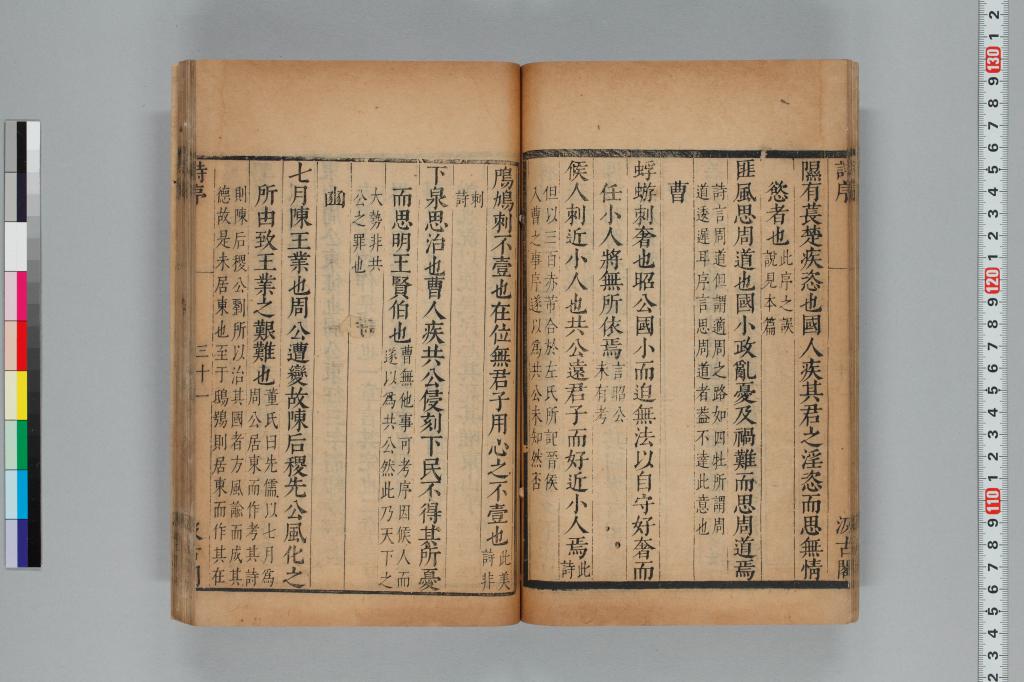 詩序
汲古閣
隰有萇楚疾恣也國人疾其君之淫恣而思無情
慾者也此序之誤
說見本篇
匪風思周道也國小政亂憂及禍難而思周道焉
詩言周道但謂適周之路如四牡所謂周
道逶遲耳序言思周道者葢不達此意也
曹
蜉蝣刺奢也昭公國小而迫無法以自守好奢而
任小人將無所依焉言昭公
未有考
候人刺近小人也共公遠君子而好近小人焉此詩
但以三百赤芾合於左氏所記晉侯
入曹之事序遂以爲共公未知然否
鳲鳩刺不壹也在位無君子用心之不壹也此美
詩非
刺
詩
下泉思治也曹人疾共公侵刻下民不得其所憂
而思明王賢伯也曹無他事可考序因候人而
遂以爲共公然此乃天下之
大勢非共
公之罪也
豳
七月陳王業也周公遭變故陳后稷先公風化之
所由致王業之艱難也董氏曰先儒以七月爲
周公居東而作考其詩
則陳后稷公劉所以治其國者方風諭而成其
德故是未居東也至于鴟鴞則居東而作其在
詩序
三十一